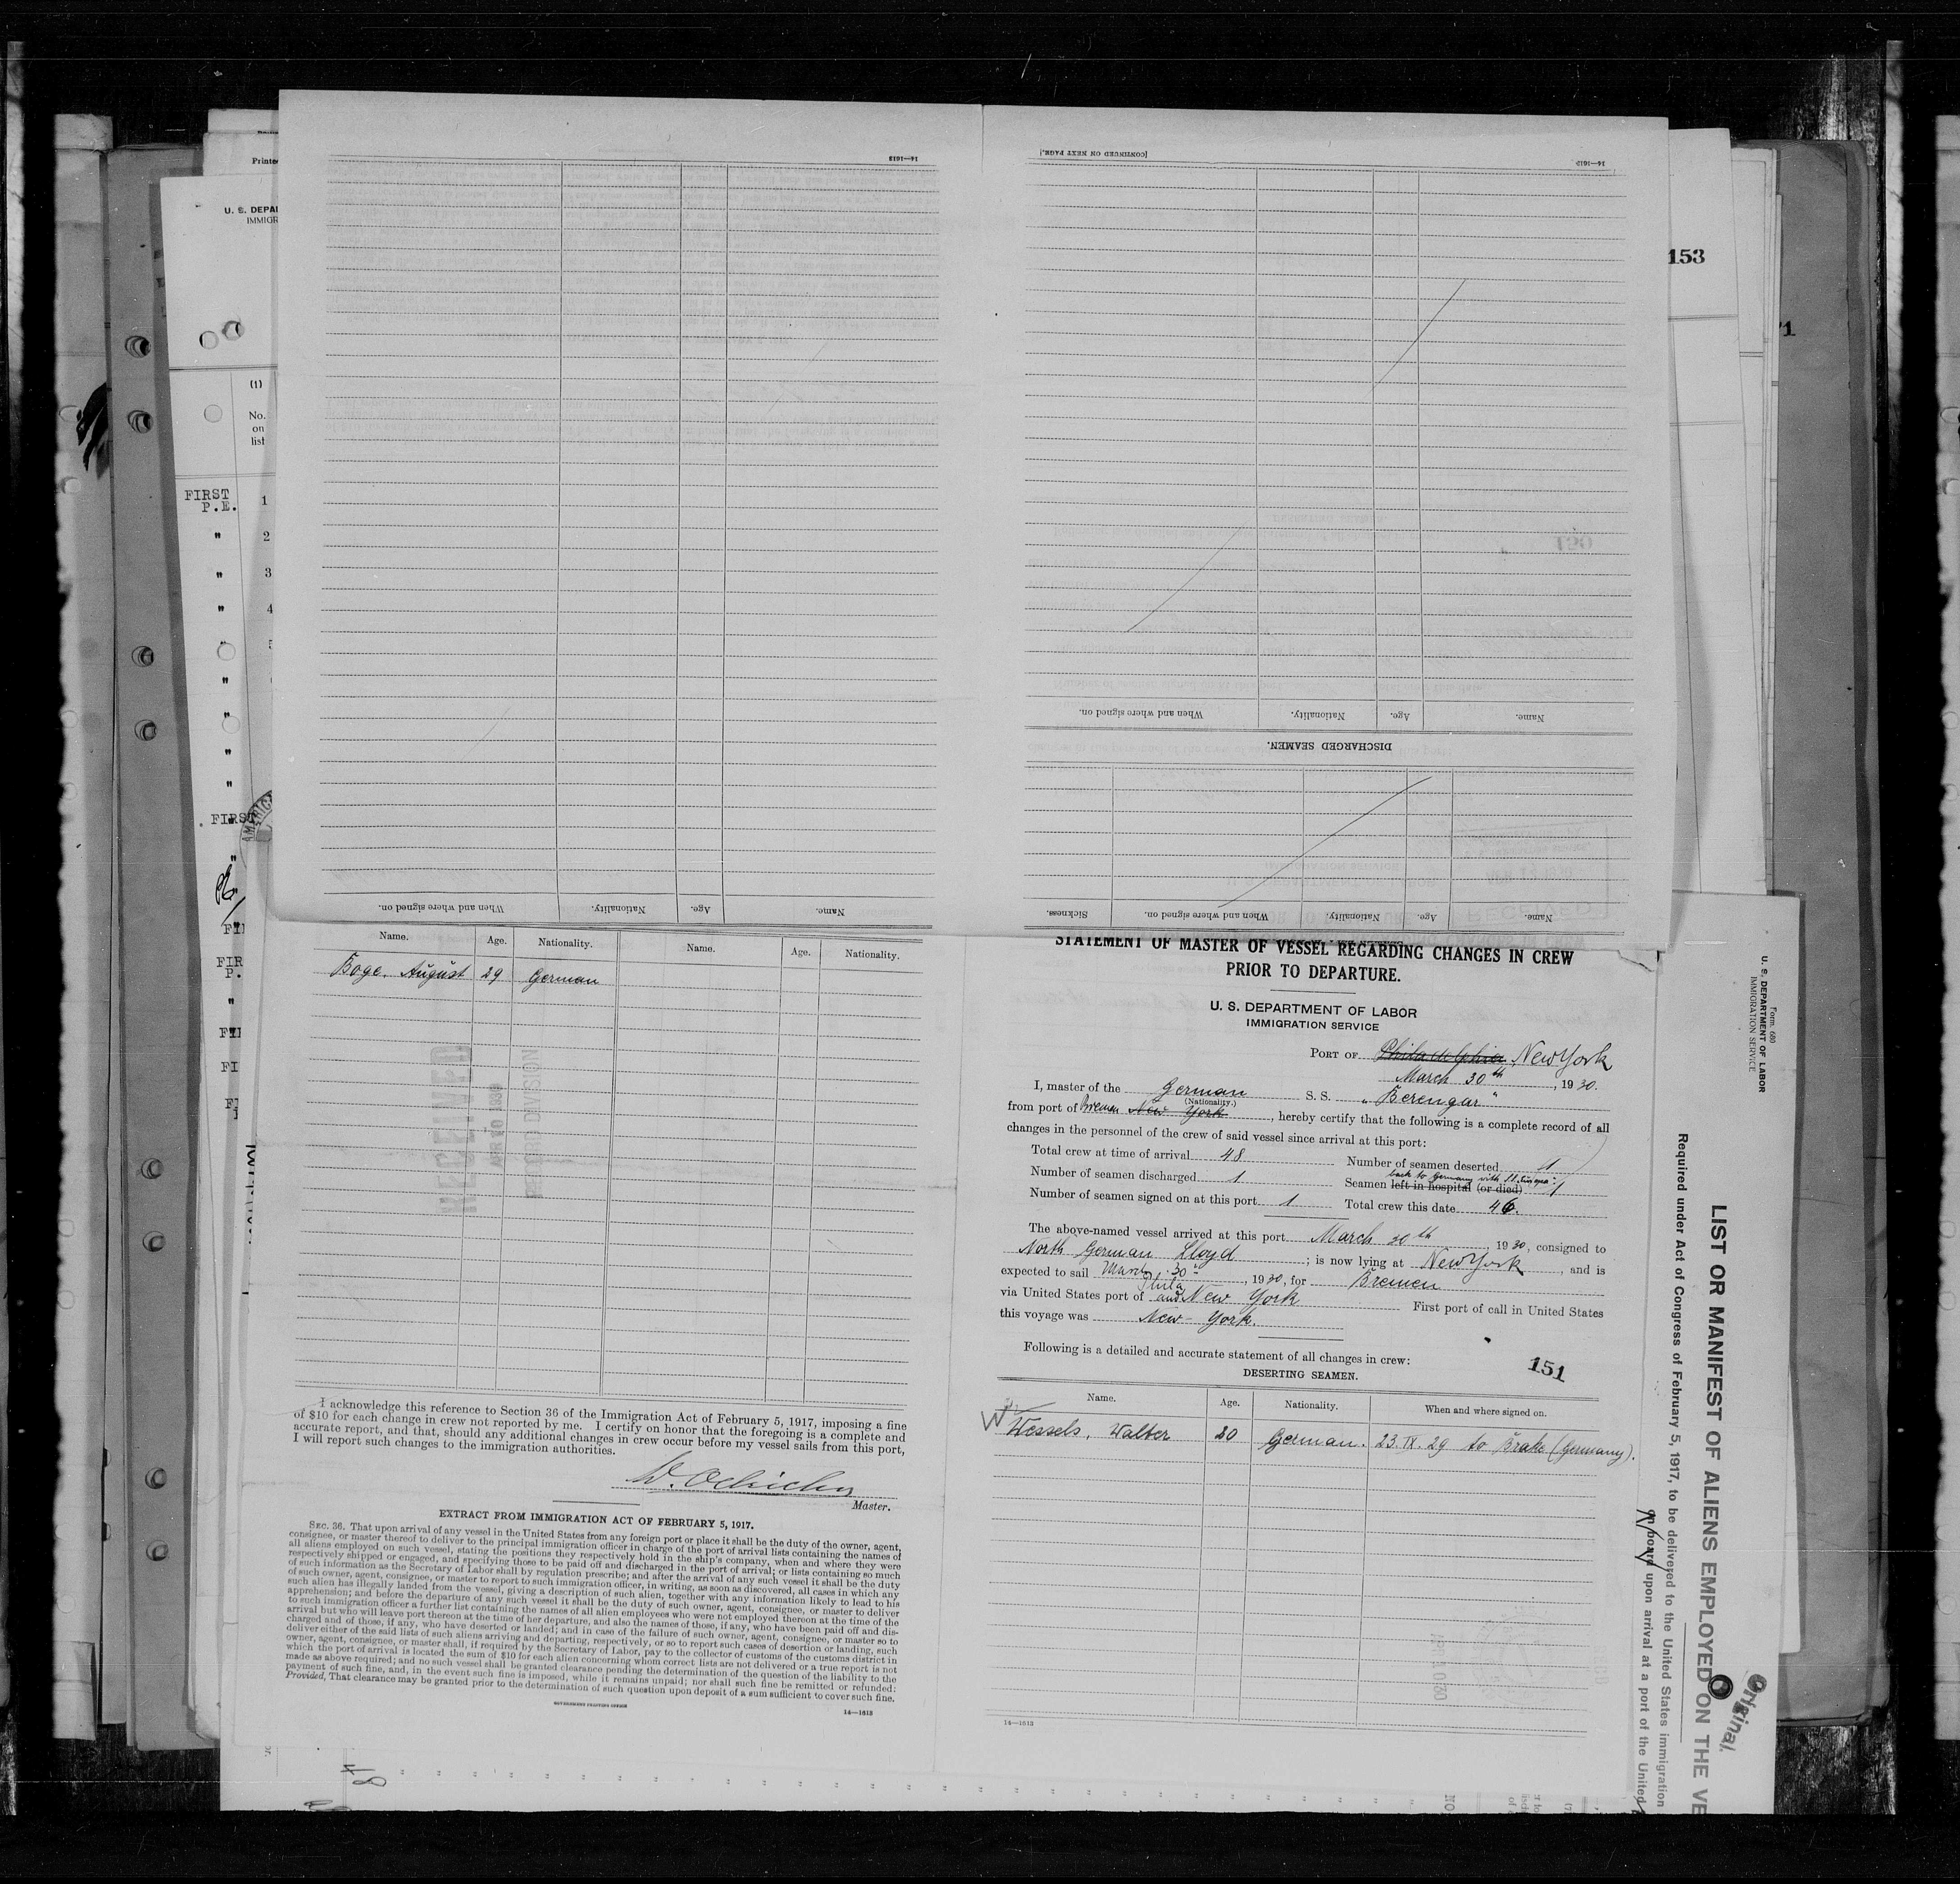 14—1613
[CONTINUED ON NEXT PAGE.]
14—1613
When and where signed on.
Nationality.
Age.
Name.
DISCHARGED SEAMEN.
Sickness.
When and where signed on.
Nationality.
Age.
Name.
When and where signed on.
Nationality.
Age.
Name.
Printe
U. S. DEPA
IMMIGR
(1)
No.
on
list
FIRST
P.E.
1
" 2
" 3
" 4
FIRST
153
Name. Age. Nationality. Name. Age. Nationality.
Boge, August 29 German
RECEIVED
APR 10 1930
RECORD DIVISION
I acknowledge this reference to Section 36 of the Immigration Act of February 5, 1917, imposing a fine
of $10 for each change in crew not reported by me. I certify on honor that the foregoing is a complete and
accurate report, and that, should any additional changes in crew occur before my vessel sails from this port,
I will report such changes to the immigration authorities.
Master.
EXTRACT FROM IMMIGRATION ACT OF FEBRUARY 5, 1917.
SEC. 36. That upon arrival of any vessel in the United States from any foreign port or place it shall be the duty of the owner, agent,
consignee, or master thereof to deliver to the principal immigration officer in charge of the port of arrival lists containing the names of
all aliens employed on such vessel, stating the positions they respectively hold in the ship's company, when and where they were
respectively shipped or engaged, and specifying those to be paid off and discharged in the port of arrival; or lists containing so much
of such information as the Secretary of Labor shall by regulation prescribe; and after the arrival of any such vessel it shall be the duty
of such owner, agent, consignee, or master to report to such immigration officer, in writing, as soon as discovered, all cases in which any
such alien has illegally landed from the vessel, giving a description of such alien, together with any information likely to lead to his
apprehension; and before the departure of any such vessel it shall be the duty of such owner, agent, consignee, or master to deliver
to such immigration officer a further list containing the names of all alien employees who were not employed thereon at the time of the
arrival but who will leave port thereon at the time of her departure, and also the names of those, if any, who have been paid off and dis-
charged and of those, if any, who have deserted or landed; and in case of the failure of such owner, agent, consignee, or master so to
deliver either of the said lists of such aliens arriving and departing, respectively, or so to report such cases of desertion or landing, such
owner, agent, consignee, or master shall, if required by the Secretary of Labor, pay to the collector of customs of the customs district in
which the port of arrival is located the sum of $10 for each alien concerning whom correct lists are not delivered or a true report is not
made as above required; and no such vessel shall be granted clearance pending the determination of the question of the liability to the
payment of such fine, and, in the event such fine is imposed, while it remains unpaid; nor shall such fine be remitted or refunded:
Provided, That clearance may be granted prior to the determination of such question upon deposit of a sum sufficient to cover such fine.
GOVERNMENT PRINTING OFFICE
14—1613
STATEMENT OF MASTER OF VESSEL REGARDING CHANGES IN CREW
PRIOR TO DEPARTURE.
U. S. DEPARTMENT OF LABOR
IMMIGRATION SERVICE
PORT OF Philadelphia, New York
March 30th, 1930.
I, master of the German S. S. "Berengar"
(Nationality.)
from port of Bremen New York, hereby certify that the following is a complete record of all
changes in the personnel of the crew of said vessel since arrival at this port:
Total crew at time of arrival 48 Number of seamen deserted 1
Number of seamen discharged 1 back to Germany with
Seamen left in hospital (or died) 1
Number of seamen signed on at this port 1 Total crew this date 46.
The above-named vessel arrived at this port March 30th, 1930, consigned to
North German Lloyd; is now lying at New York, and is
expected to sail March 30th, 1930, for Bremen
via United States port of Phila and New York First port of call in United States
this voyage was New-York.
Following is a detailed and accurate statement of all changes in crew:
151
DESERTING SEAMEN.
Name. Age. Nationality. When and where signed on.
Wessels, Walter 20 German. 23.IX.29 to Brake (Germany).
14—1613
Form 680
U. S. DEPARTMENT OF LABOR
IMMIGRATION SERVICE
LIST OR MANIFEST OF ALIENS EMPLOYED ON THE VE
Required under Act of Congress of February 5, 1917, to be delivered to the United States immigration
on board upon arrival at a port of the United
Original
48